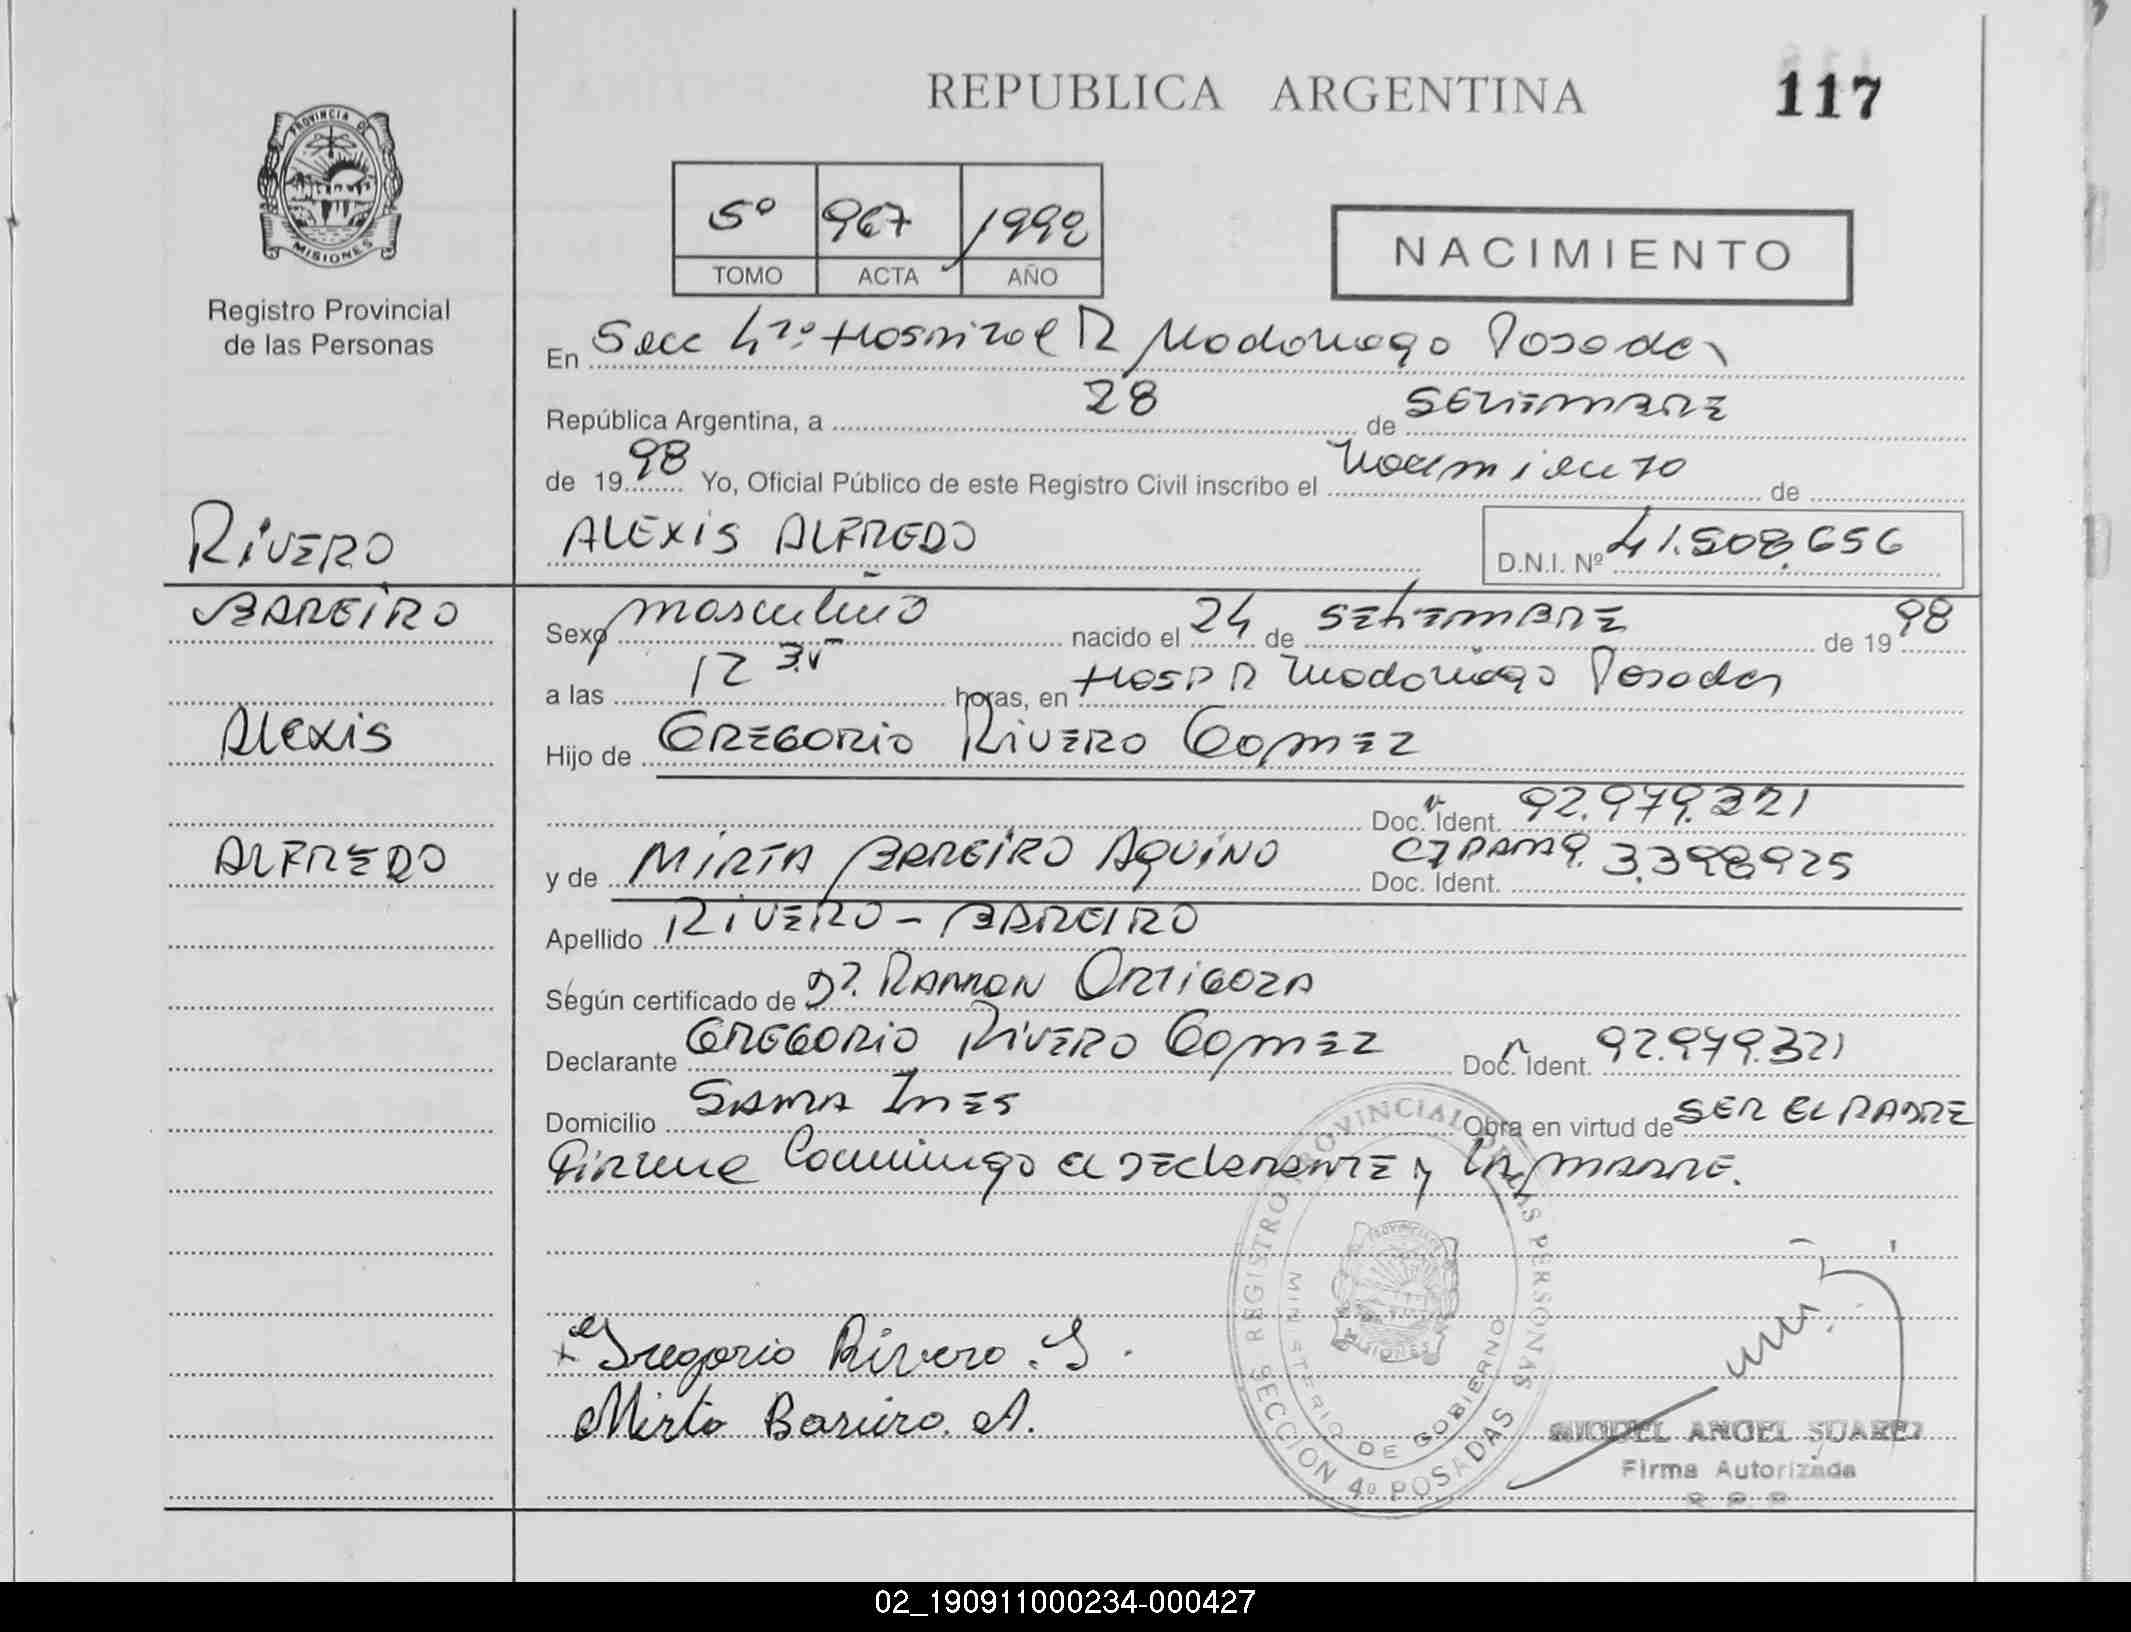 REPUBLICA ARGENTINA
117
PROVINCIA DE
MISIONES
Registro Provincial
de las Personas
5º 967 1998
TOMO ACTA AÑO
NACIMIENTO
En Secc 4ta Hospital R Madariaga Posadas
República Argentina, a 28 de SETIEMBRE
de 1998 Yo, Oficial Público de este Registro Civil inscribo el Nacimiento de
RIVERO
ALEXIS ALFREDO
D.N.I. Nº 41.508.656
BAREIRO
Sexo masculino nacido el 24 de SETIEMBRE de 1998
a las 12 horas, en HOSP R Madariaga Posadas
Alexis
Hijo de GREGORIO RIVERO GOMEZ
Doc. Ident. 92.979.321
ALFREDO
y de MIRTA BAREIRO AQUINO Doc. Ident. 3.398925
Apellido RIVERO - BAREIRO
Según certificado de Dr. RAMON ORTIGOZA
Declarante GREGORIO RIVERO GOMEZ Doc. Ident. 92.979.321
Domicilio SANTA INES Obra en virtud de SER EL PADRE
Firma Conmigo el DEClARANTE y LA MADRE.
REGISTRO PROVINCIAL DE LAS PERSONAS
MINISTERIO DE GOBIERNO
SECCION 4º POSADAS
Gregorio Rivero. G.
Mirta Bareiro. A.
MIGUEL ANGEL SUAREZ
Firma Autorizada
02_190911000234-000427